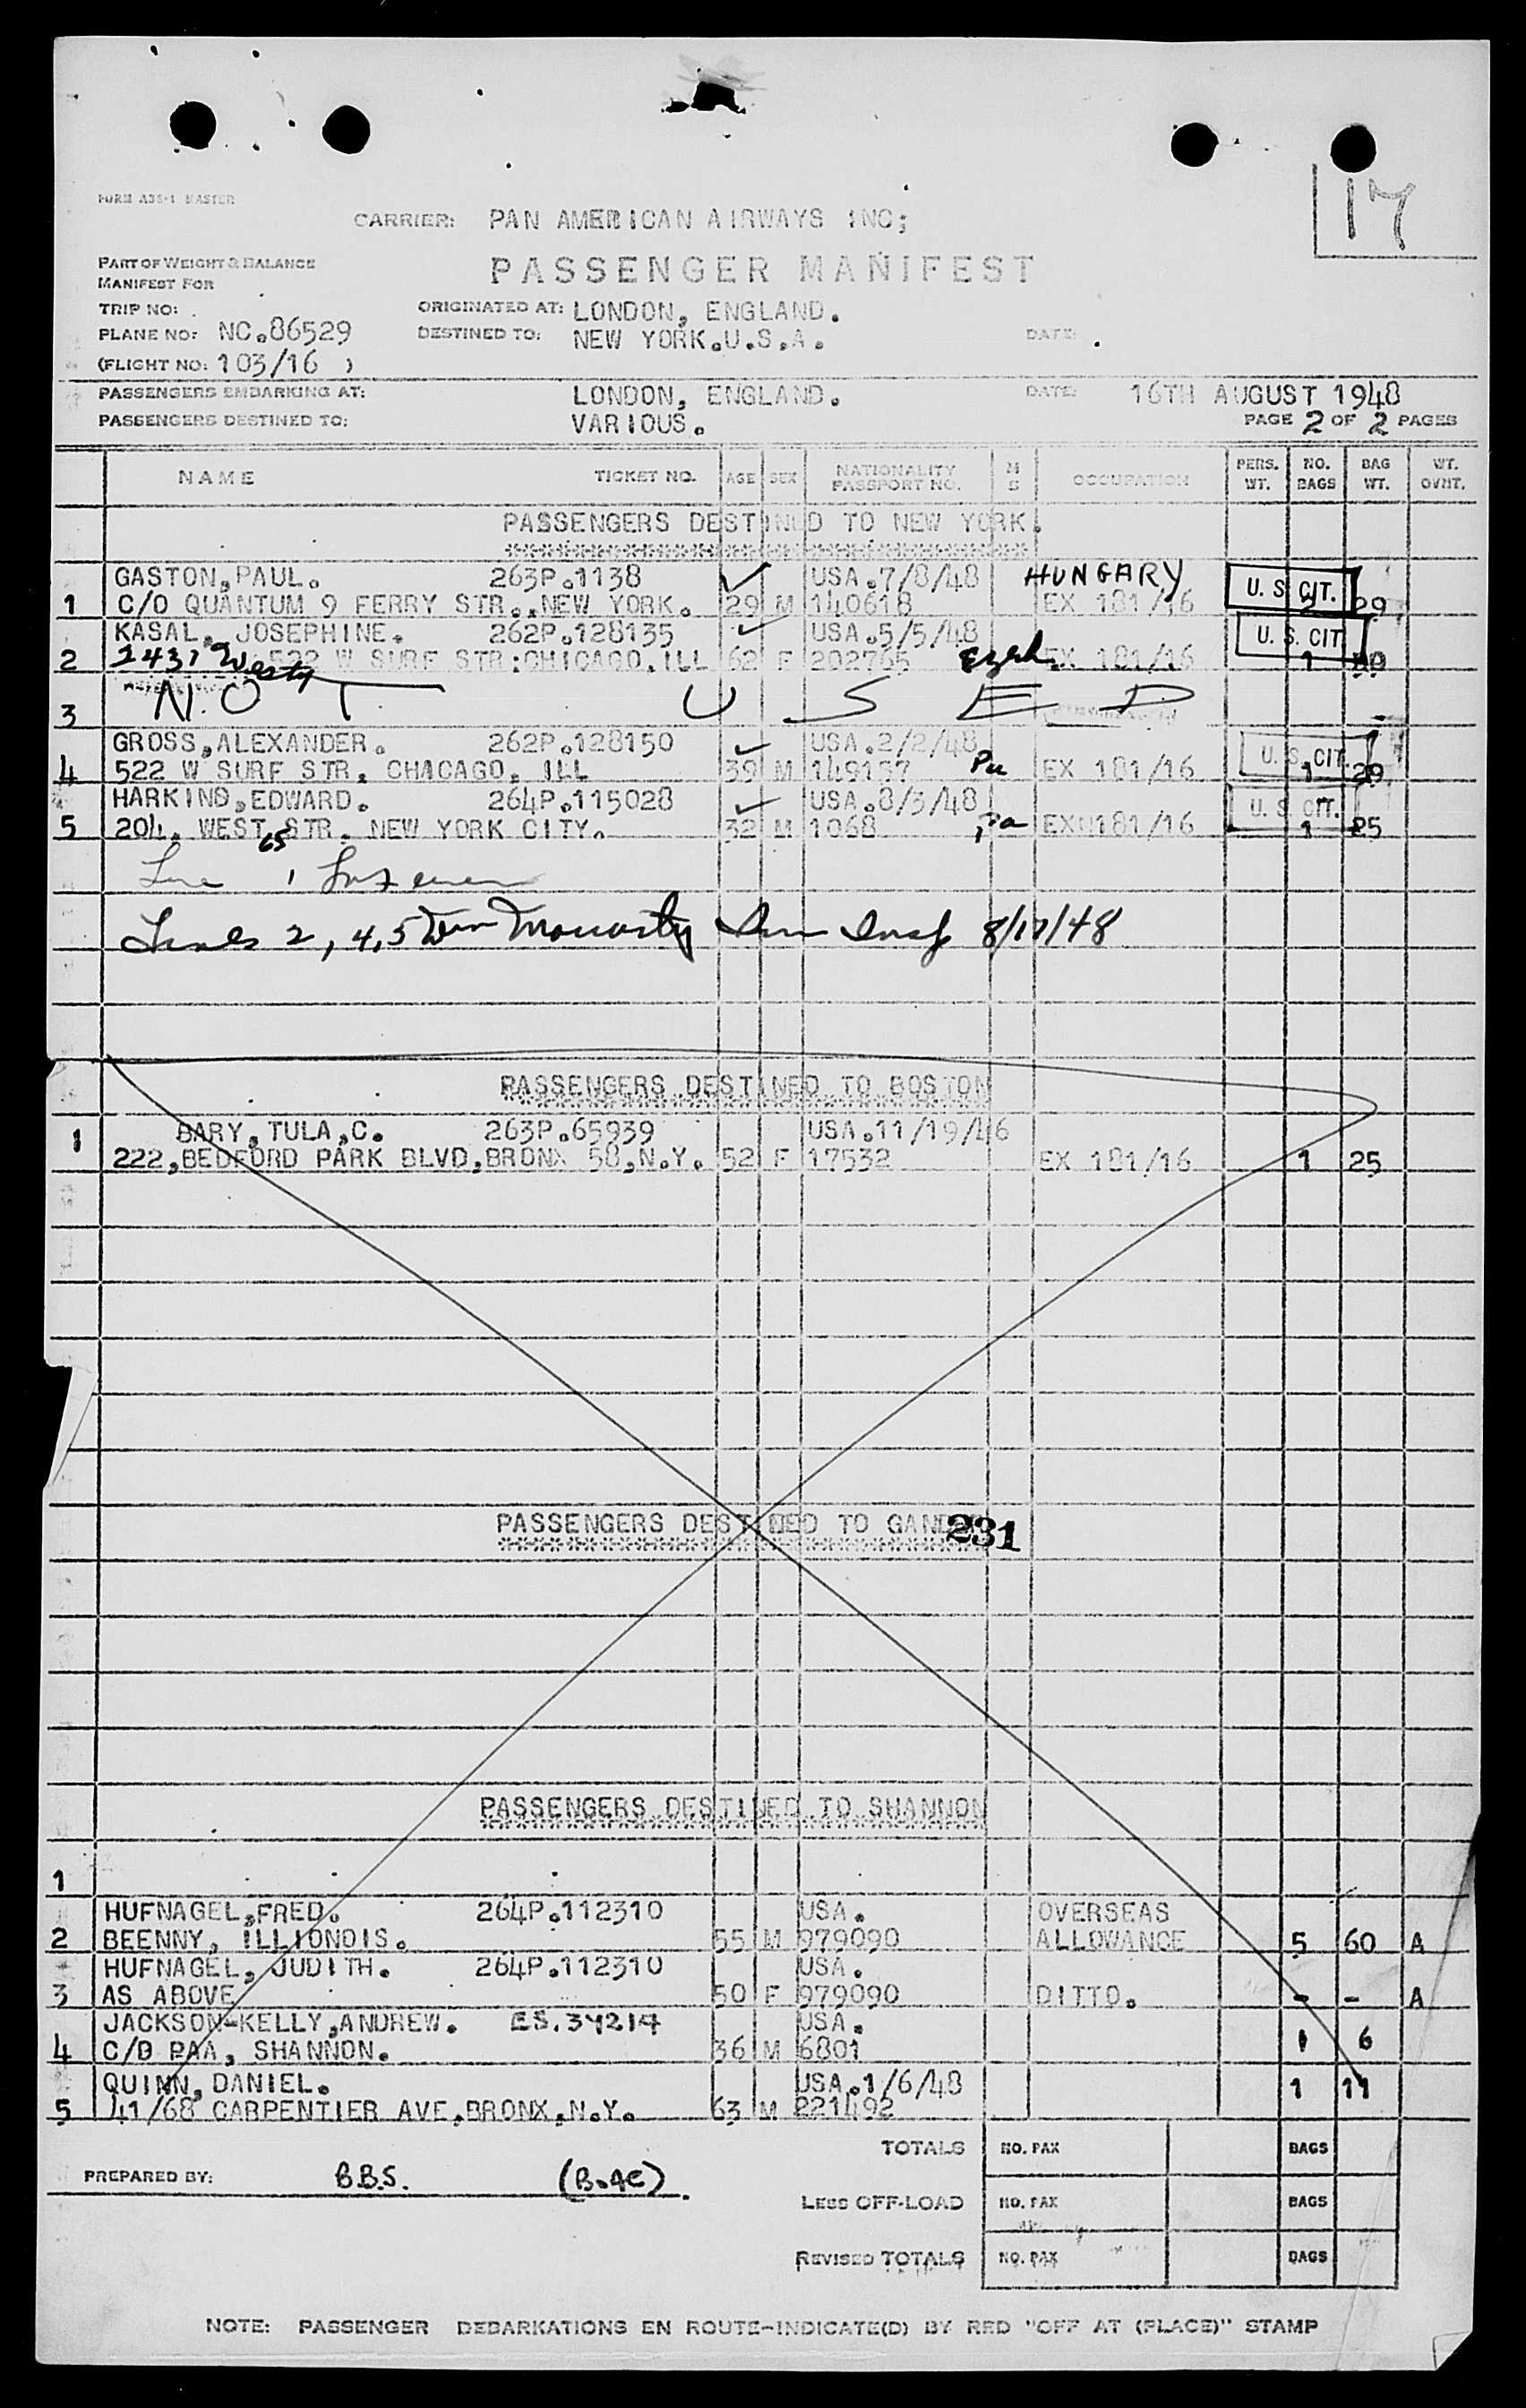 FORM A35-1 MASTER
17
CARRIER: PAN AMERICAN AIRWAYS INC;
PART OF WEIGHT & BALANCE
MANIFEST FOR
PASSENGER MANIFEST
TRIP NO:
ORIGINATED AT: LONDON, ENGLAND.
PLANE NO: NC.86529
DESTINED TO: NEW YORK.U.S.A.
DATE:
(FLIGHT NO: 103/16 )
PASSENGERS EMBARKING AT: LONDON, ENGLAND. DATE: 16TH AUGUST 1948
PASSENGERS DESTINED TO: VARIOUS. PAGE 2 OF 2 PAGES
NAME TICKET NO. AGE SEX NATIONALITY PASSPORT NO. M S OCCUPATION PERS. WT. NO. BAGS BAG WT. WT. OVNT.
PASSENGERS DESTINED TO NEW YORK.
GASTON,PAUL. 263P.1138 USA.7/8/48 HUNGARY U. S. CIT.
1 C/O QUANTUM 9 FERRY STR.,NEW YORK. 29 M 140618 EX 181/16 29
KASAL, JOSEPHINE. 262P.128135 USA.5/5/48 U. S. CIT
2 2431 522 W SURF STR:CHICAGO.ILL 62 F 202765 EX 181/16 1
3 NOT USED
GROSS,ALEXANDER. 262P.128150 USA.2/2/48 U. S. CIT.
4 522 W SURF STR. CHACAGO, ILL 39 M 149157 EX 181/16 1 29
HARKIND,EDWARD. 264P.115028 USA.8/3/48 U. S. CIT.
5 204. WEST 65 STR. NEW YORK CITY. 32 M 1068 Pa EX 181/16 1 25
Line 1
Lines 2, 4, 5 Wm Moriarty Imm Insp 8/17/48
PASSENGERS DESTINED TO BOSTON
1 BARY,TULA,C. 263P.65939 USA.11/19/46
222,BEDFORD PARK BLVD,BRONX 58,N.Y. 52 F 17532 EX 181/16 1 25
PASSENGERS DESTINED TO GANDER
231
PASSENGERS DESTINED TO SHANNON
1
HUFNAGEL,FRED. 264P.112310 USA. OVERSEAS
2 BEENNY, ILLIONOIS. 55 M 979090 ALLOWANCE 5 60 A
HUFNAGEL, JUDITH. 264P.112310 USA.
3 AS ABOVE 50 F 979090 DITTO. - - A
JACKSON-KELLY,ANDREW. ES.34214 USA.
4 C/O PAA, SHANNON. 36 M 6801 1 6
QUINN, DANIEL. USA.1/6/48 1 11
5 141/68 CARPENTIER AVE,BRONX,N.Y. 63 M 221492
TOTALS NO. PAX BAGS
PREPARED BY: B.B.S.
LESS OFF-LOAD NO. PAX BAGS
REVISED TOTALS NO. PAX BAGS
NOTE: PASSENGER DEBARKATIONS EN ROUTE-INDICATE(D) BY RED "OFF AT (PLACE)" STAMP